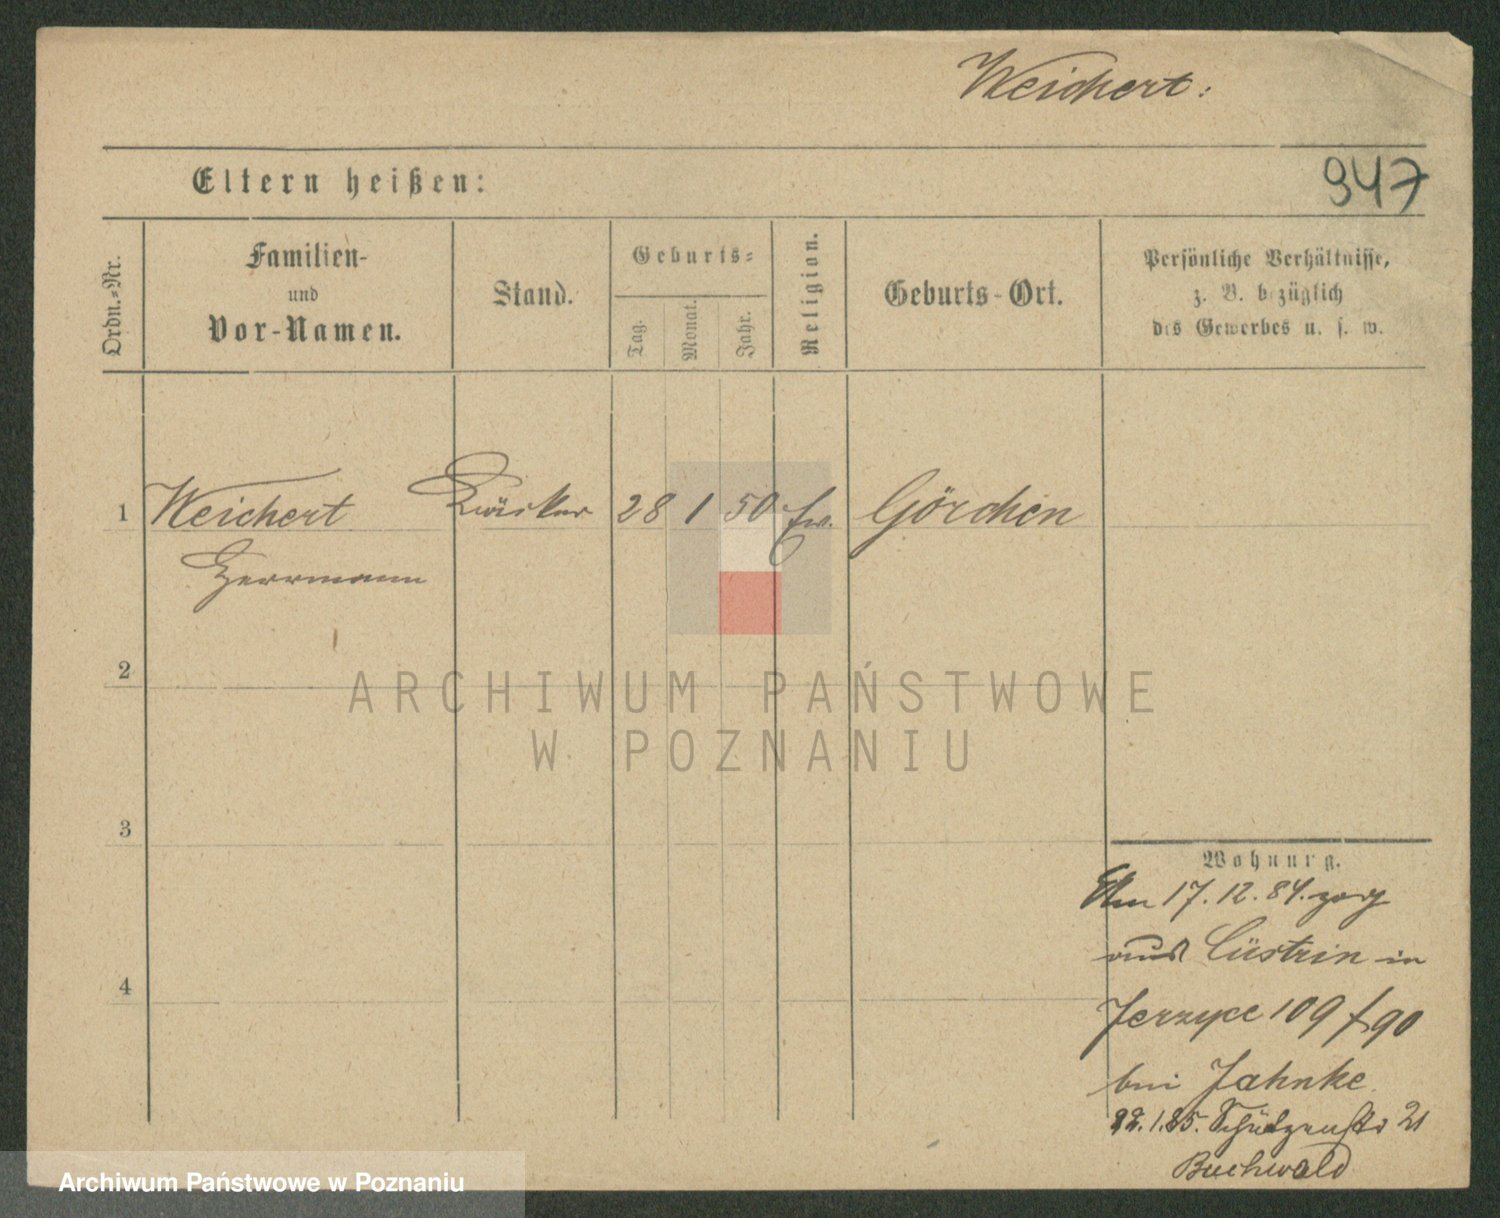 Weichert:
Eltern heißen:
947
Ordn.-Nr.
Familien-
und
Vor-Namen.
Stand.
Geburts-
Tag.
Monat.
Jahr.
Religion.
Geburts-Ort.
Persönliche Verhältnisse,
z. B. bezüglich
des Gewerbes u. s. w.
1 Weichert 28 1 50 ev. Görchen
Herrmann
2
3
4
ARCHIWUM PAŃSTWOWE
W POZNANIU
Wohnung.
Am 17. 12. 84. zog
aus Cüstrin in
Jerzyce 109 f 90
bei Jahnke
22. 1. 85. Schützenstr 21
Buchwald
Archiwum Państwowe w Poznaniu